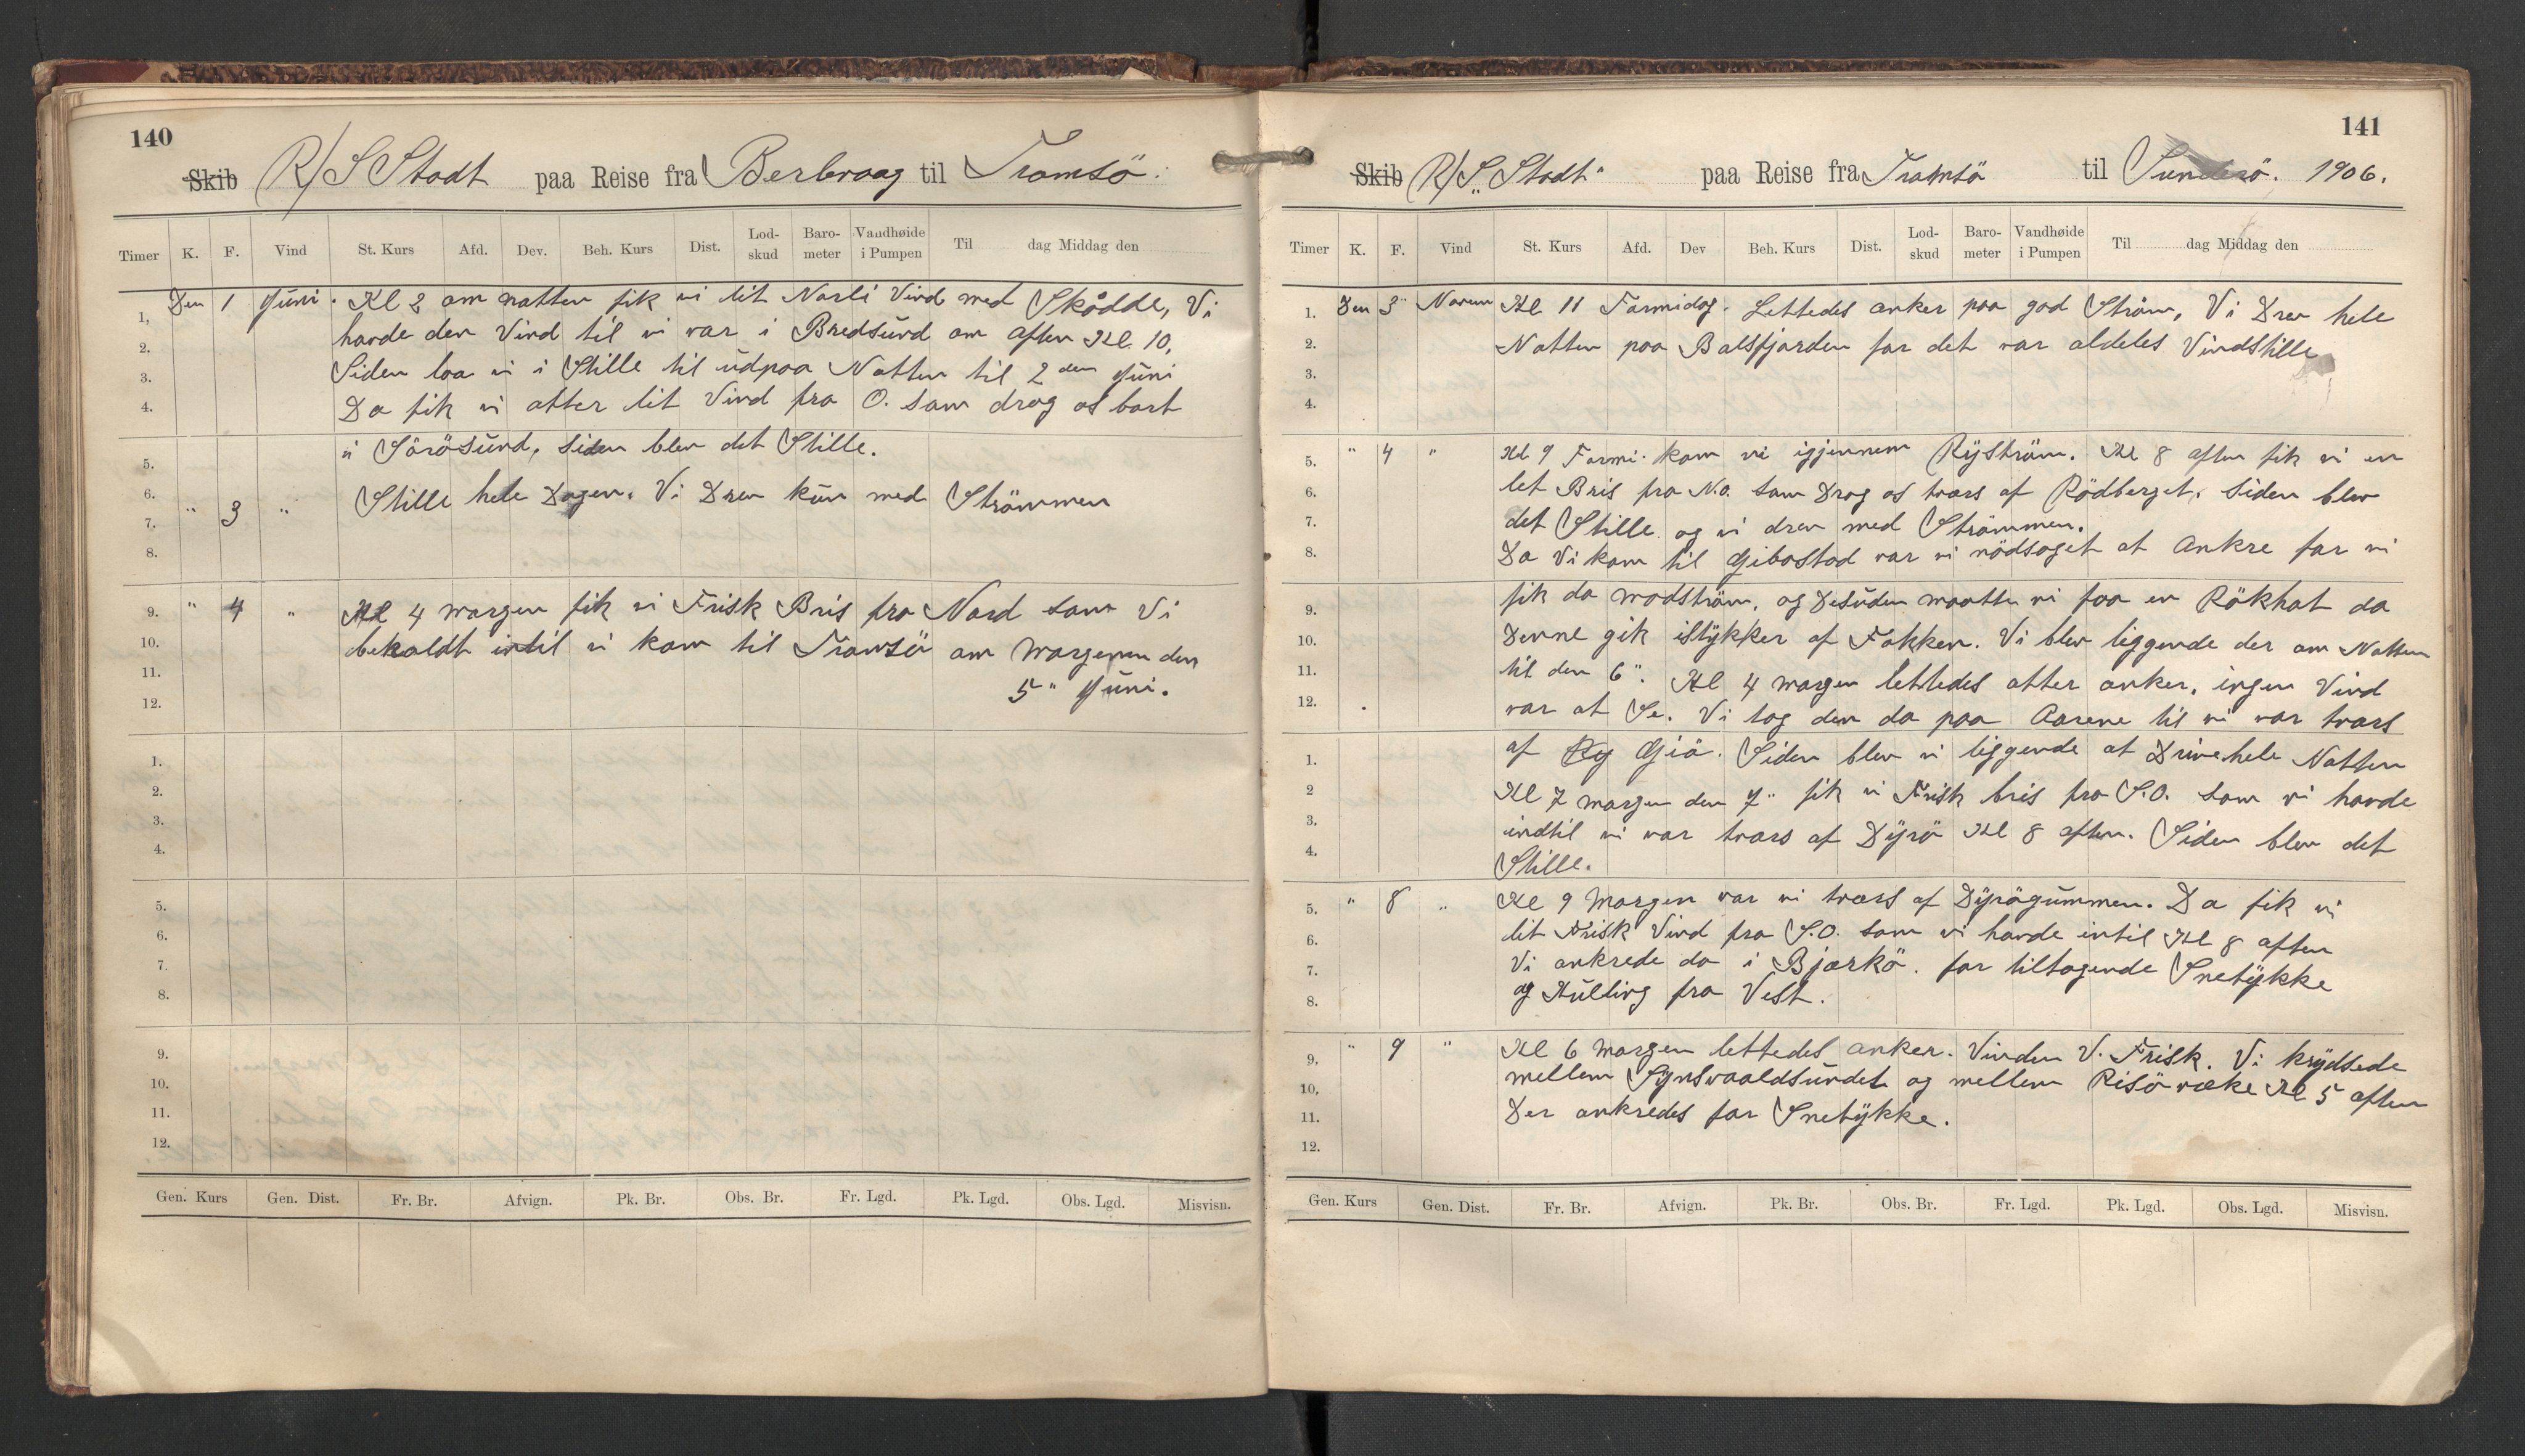 140
Skib R/S Stadt paa Reise fra Berlevaag til Tromsö.
Timer K. F. Vind St. Kurs Afd. Dev. Beh. Kurs Dist. Lod-skud Baro-meter Vandhøide i Pumpen Til dag Middag den
1, Den 1 Juni. Kl 2 om natten fik vi lit Nordli Vind med Skodde, Vi
2. havde den Vind til vi var i Bredsund om aften Kl. 10.
3. Siden laa vi i Stille til udpaa Natten til 2den Juni
4. Da fik vi atter lit Vind fra O. som drog os bort
5. i Sörösund, siden blev det Stille.
6. " 3 " Stille hele Dagen. Vi Drev kun med Strömmen
7.
8.
9. " 4 " Kl 4 morgen fik vi Frisk Bris fra Nord som Vi
10. bekoldt intil vi kom til Tromsö om Morgenen den
11. 5" Juni.
12.
1.
2.
3.
4.
5.
6.
7.
8.
9.
10.
11.
12.
Gen. Kurs Gen. Dist. Fr. Br. Afvign. Pk. Br. Obs. Br. Fr. Lgd. Pk. Lgd. Obs. Lgd. Misvisn.
141
Skib R/S „Stadt" paa Reise fra Tromsö til 1906.
Timer K. F. Vind St. Kurs Afd. Dev Beh. Kurs Dist. Lod-skud Baro-meter Vandhøide i Pumpen Til dag Middag den
1. Den 3" Novem Kl 11 Formidag. Lettedes anker paa god Ström, Vi Drev hele
2. Natten paa Balsfjorden for det var aldeles Vindstille
3.
4.
5. " 4 " Kl 9 Formi. kom vi igjennem Ryström. Kl 8 aften fik vi en
6. let Bris fra N.O. som Drog os tvars af Rödberget, siden blev
7. det Stille og vi drev med Strömmen.
8. Da Vi kom til Gibostad var vi nödsaget at Ankre for vi
9. fik da modström, og Desuden maatte vi faa en Rökhat da
10. Denne gik istykker af Fokken. Vi blev liggende der om Natten
11. til den 6". Kl 4 morgen lettedes atter anker, ingen Vind
12. var at Se. Vi tog den da paa Aarene til vi var tvars
1. af Giö. Siden blev vi liggende at Drive hele Natten
2 Kl 7 morgen den 7" fik vi Frisk bris fra S.O. som vi havde
3. indtil vi var tvars af Dyrö Kl 8 aften. Siden blev det
4. Stille.
5. " 8 " Kl 9 Morgen var vi tvers af Dyrögummen. Da fik vi
6. lit Frisk Vind fra S.O. som vi havde intil Kl 8 aften
7. Vi ankrede da i Bjarkö. for tiltagende Snetykke
8. og Kulling fra Vest.
9. " 9 " Kl 6 Morgen lettedes anker. Vinden V. Frisk. Vi krydsede
10, mellem Synsvaaldsundet og mellem Risö ræke Kl 5 aften
11. Der ankredes for Snetykke.
12.
Gen. Kurs Gen. Dist. Fr. Br. Afvign. Pk. Br. Obs. Br. Fr. Lgd. Pk. Lgd. Obs. Lgd. Misvisn.